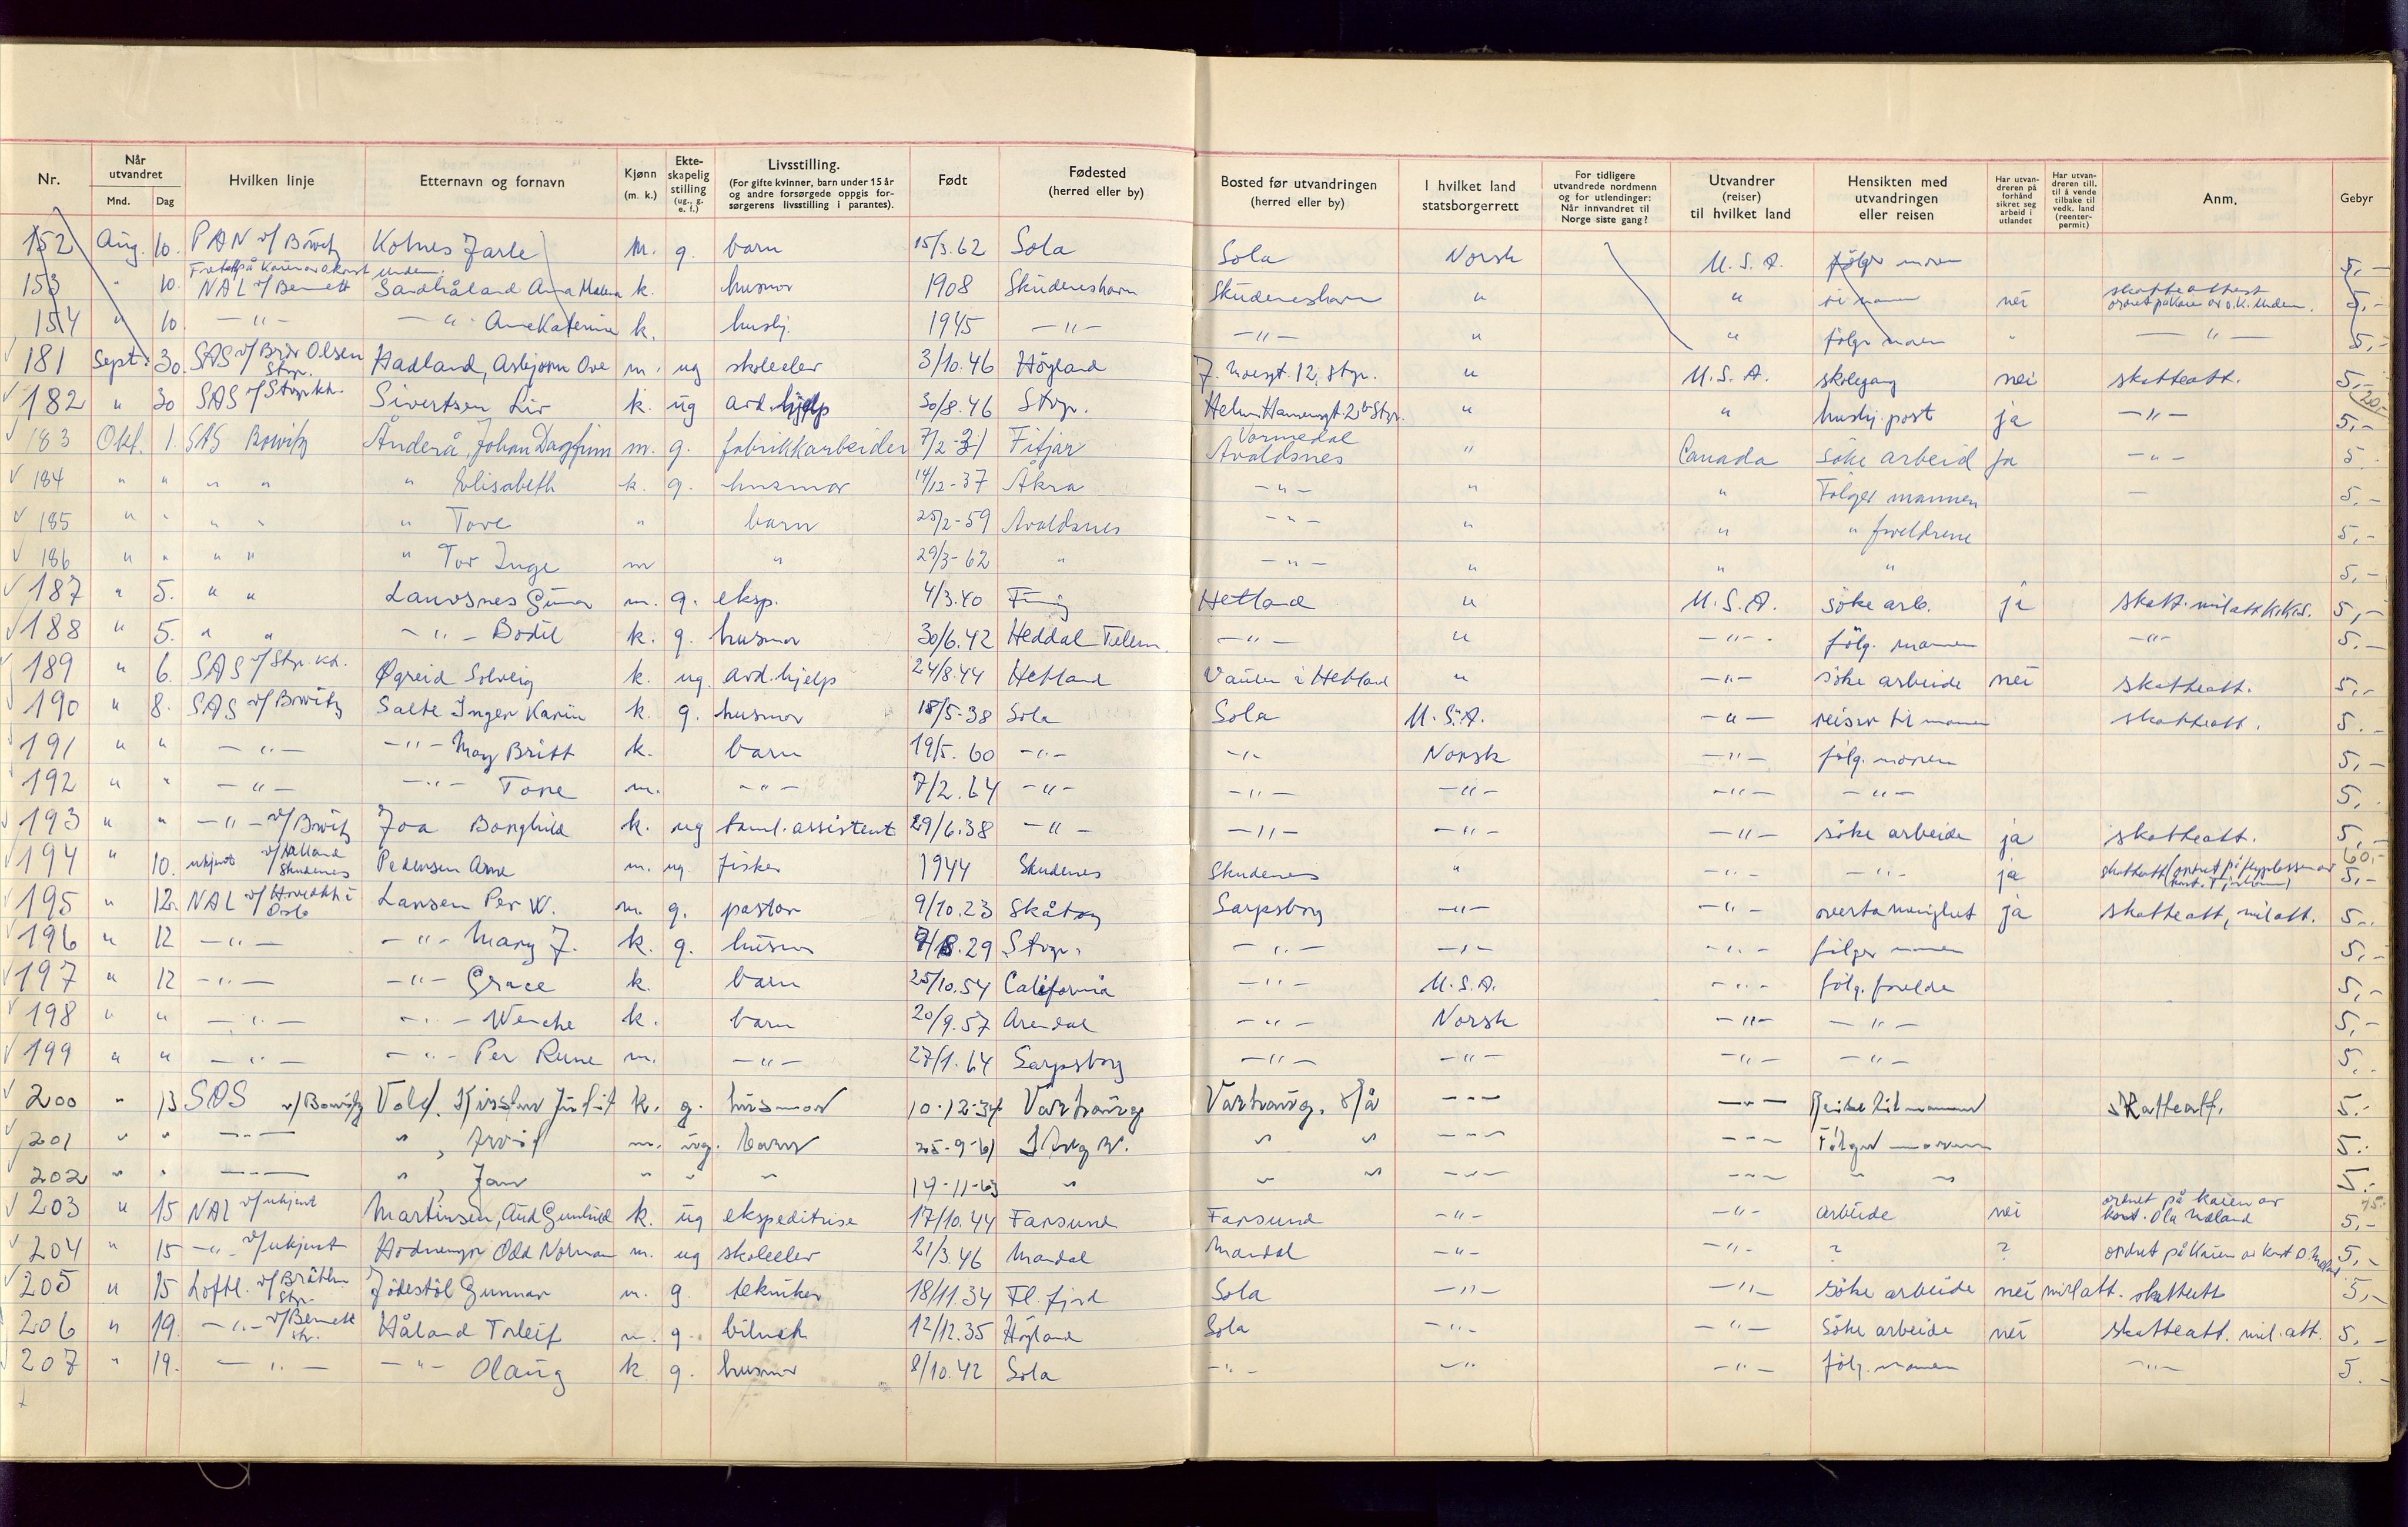 Nr. Når utvandret Mnd. Dag Hvilken linje Etternavn og fornavn Kjønn (m. k.) Ekteskapelig stilling (ug., g. e. f.) Livsstilling. (For gifte kvinner, barn under 15 år og andre forsørgede oppgis forsørgerens livsstilling i parantes). Født Fødested (herred eller by) Bosted før utvandringen (herred eller by) I hvilket land statsborgerrett For tidligere utvandrede nordmenn og for utlendinger: Når innvandret til Norge siste gang? Utvandrer (reiser) til hvilket land Hensikten med utvandringen eller reisen Har utvandreren på forhånd sikret seg arbeid i utlandet Har utvandreren till. til å vende tilbake til vedk. land (reenterpermit) Anm. Gebyr
152 Aug. 10. PAN v/ Bowitz Kolnes Jarle m. g. barn 15/3.62 Sola Sola Norsk U.S.A. følger moren 5,-
153 " 10. NAL v/ Bennett Sandhåland Anna Malena k. husmor 1908 Skudeneshavn Skudeneshavn " " til mannen nei skatteattest ordnet på Kaien av O.K. Undem. 5,-
154 " 10. -"- -"- Ane Katerine k. hushj. 1945 -"- -"- " " følger moren " -"- 5,-
181 Sept. 30. SAS v/ Brdr Olsen Stvgr. Hadland, Asbjørn Ove m. ug skoleelev 3/10.46 Høyland St.gr. " U.S.A. skolegang nei skatteatt. 5,-
182 " 30 SAS v/ Stvgr. kh. Sivertsen Liv k. ug avd. hjelp 30/8.46 Stvgr. " " hushj. post ja -"- 5,- 20,-
183 Okt. 1. SAS Bowitz Änderå, Johan Dagfinn m. g. fabrikkarbeider 7/2-31 Fitjar Vormedal Avaldsnes " Canada søke arbeid ja -"- 5
184 " " " " " Elisabeth k. g. husmor 14/12-37 Åkra -"- " " Følger mannen - 5,-
185 " " " " " Tove " barn 25/2-59 Avaldsnes -"- " " " foreldrene 5,-
186 " " " " " Tor Inge m " 29/3-62 " -"- " " " 5,-
187 " 5. " " Lauvsnes Gunnar m. g. eksp. 4/3.40 Hetland " U.S.A. søke arb. ja skatt. milatt. 5,-
188 " 5. " " -"- Bodil k. g. husmor 30/6.42 Heddal Telem. -"- " -"- følg. mannen -"- 5.-
189 " 6. SAS v/ Stvgr. kh. Øgreid Solveig k. ug. avd. hjelp 24/8.44 Hetland Vaulen i Hetland " -"- søke arbeide nei skatteatt. 5,-
190 " 8. SAS v/ Bowitz Salte Inger Karin k. g. husmor 18/5-38 Sola Sola U.S.A. -"- reiser til mannen skatteatt. 5.-
191 " " -"- -"- May Britt k. barn 19/5.60 -"- -"- Norsk -"- følg. moren 5,-
192 " " -"- -"- Tore m. -"- 7/2.64 -"- -"- -"- -"- -"- 5,
193 " " -"- v/ Bowitz Joa Borghild k. ug tannl. assistent 29/6.38 -"- -"- -"- -"- søke arbeide ja skatteatt. 5,-
194 " 10. ukjent Skudenes Pedersen Arne m. ug. fisker 1944 Skudenes Skudenes " -"- -"- ja 60,- 5,-
195 " 12. NAL v/ Hovedkt. i Oslo Larsen Per W. m. g. pastor 9/10.23 Skåtøy Sarpsborg -"- -"- overta menighet ja skatteatt, milatt. 5,-
196 " 12 -"- -"- Mary J. k. g. husmor 29 Stvgr. -"- -"- -"- følger mannen 5,-
197 " 12 -"- -"- Grace k. barn 25/10.54 California -"- U.S.A. -"- følg. foreldre 5,-
198 " " -"- -"- Wenche k. barn 20/9.57 Arendal -"- Norsk -"- -"- 5,-
199 " " -"- -"- Per Rune m. -"- 27/1.64 Sarpsborg -"- -"- -"- -"- 5,-
200 " 13 SAS v/ Bowitz Vold, k. g. husmor 10-12-34 Varhaug Varhaug, -"- -"- Reise til mannen skatteatt. 5.-
201 " " -"- " , Arvid m. ug. barn 25-9-61 " " -"- -"- Følger moren 5:
202 " " -"- " , Jan " " " 17-11-63 " " " -"- -"- " " 5.-
203 " 15 NAL v/ ukjent Martinsen, Aud Gunhild k. ug ekspeditrise 17/10.44 Farsund Farsund -"- -"- arbeide nei ordnet på kaien av kont. Ola Mæland 75.- 5,-
204 " 15 -"- v/ ukjent Odd Norman m. ug skoleelev 21/3.46 Mandal Mandal -"- -"- ? ? ordnet på Kaien av kont O. Mæland. 5,-
205 " 15 Loftl. v/ Bråthen Stvgr. Jødestøl Gunnar m. g tekniker 18/11.34 Fl. fjord Sola -"- -"- søke arbeide nei milatt. skatteatt 5,-
206 " 19. -"- v/ Bennett Håland Torleif m. g. bilmek 12/12.35 Høyland Sola -"- -"- søke arbeide nei skatteatt. mil. att. 5,-
207 " 19. -"- -"- Olaug k g. husmor 8/10.42 Sola -"- -"- -"- følg. mannen -"- 5.